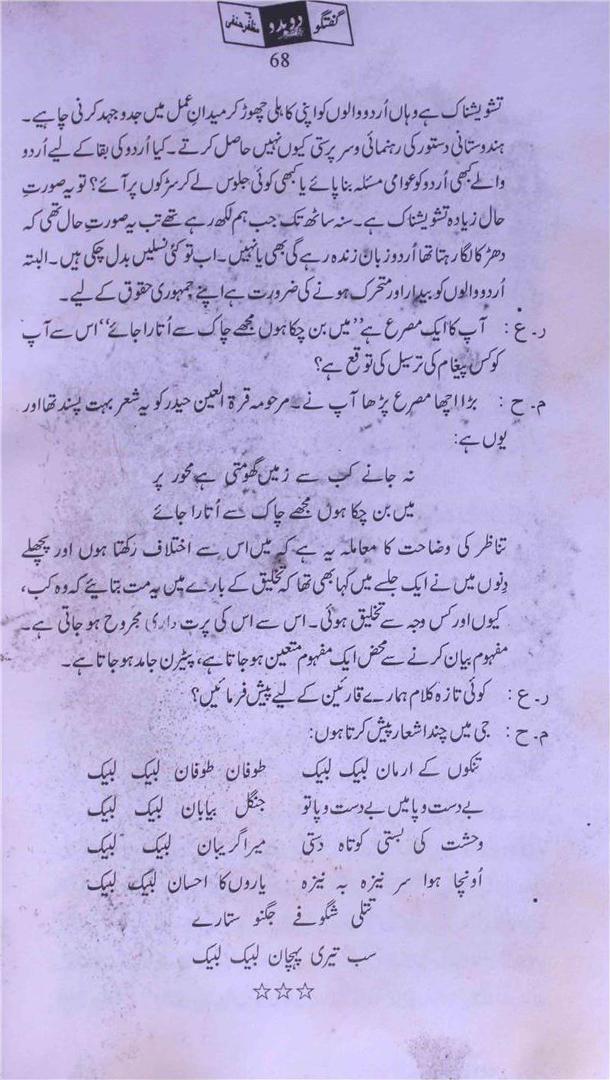 گفتگو دوبدو مظفر حنفی
68
تشویشناک ہے وہاں اُردو والوں کو اپنی کاہلی چھوڑ کر میدانِ عمل میں جدوجہد کرنی چاہیے۔
ہندوستانی دستور کی رہنمائی و سرپرستی کیوں نہیں حاصل کرتے۔ کیا اُردو کی بقا کے لیے اُردو
والے کبھی اُردو کو عوامی مسئلہ بنا پائے یا کبھی کوئی جلوس لے کر سڑکوں پر آئے؟ تو یہ صورتِ
حال زیادہ تشویشناک ہے۔ سنہ ساٹھ تک جب ہم لکھ رہے تھے تب یہ صورتِ حال تھی کہ
دھڑکا لگا رہتا تھا اُردو زبان زندہ رہے گی بھی یا نہیں۔ اب تو کئی نسلیں بدل چکی ہیں۔ البتہ
اُردو والوں کو بیدار اور متحرک ہونے کی ضرورت ہے اپنے جمہوری حقوق کے لیے۔
ر۔ع: آپ کا ایک مصرع ہے ”میں بن چکا ہوں مجھے چاک سے اُتارا جائے“ اس سے آپ
کو کس پیغام کی ترسیل کی توقع ہے؟
م۔ح: بڑا اچھا مصرع پڑھا آپ نے۔ مرحومہ قرۃ العین حیدر کو یہ شعر بہت پسند تھا اور
یوں ہے:
نہ جانے کب سے زمیں گھومتی ہے محور پر
میں بن چکا ہوں مجھے چاک سے اُتارا جائے
تناظر کی وضاحت کا معاملہ یہ ہے کہ میں اس سے اختلاف رکھتا ہوں اور پچھلے
دِنوں میں نے ایک جلسے میں کہا بھی تھا کہ تخلیق کے بارے میں یہ مت بتائیے کہ وہ کب،
کیوں اور کس وجہ سے تخلیق ہوئی۔ اس سے اس کی پرت داری مجروح ہو جاتی ہے۔
مفہوم بیان کرنے سے محض ایک مفہوم متعین ہو جاتا ہے، پیٹرن جامد ہو جاتا ہے۔
ر۔ع: کوئی تازہ کلام ہمارے قارئین کے لیے پیش فرمائیں؟
م۔ح: جی میں چند اشعار پیش کرتا ہوں:
تنکوں کے ارمان لبیک لبیک طوفان طوفان لبیک لبیک
بے دست و پا میں بے دست و پا تو جنگل بیابان لبیک لبیک
وحشت کی بستی کوتاہ دستی میرا گریبان لبیک لبیک
اُونچا ہوا سر نیزہ بہ نیزہ یاروں کا احسان لبیک لبیک
تتلی شگوفے جگنو ستارے
سب تیری پہچان لبیک لبیک
☆☆☆